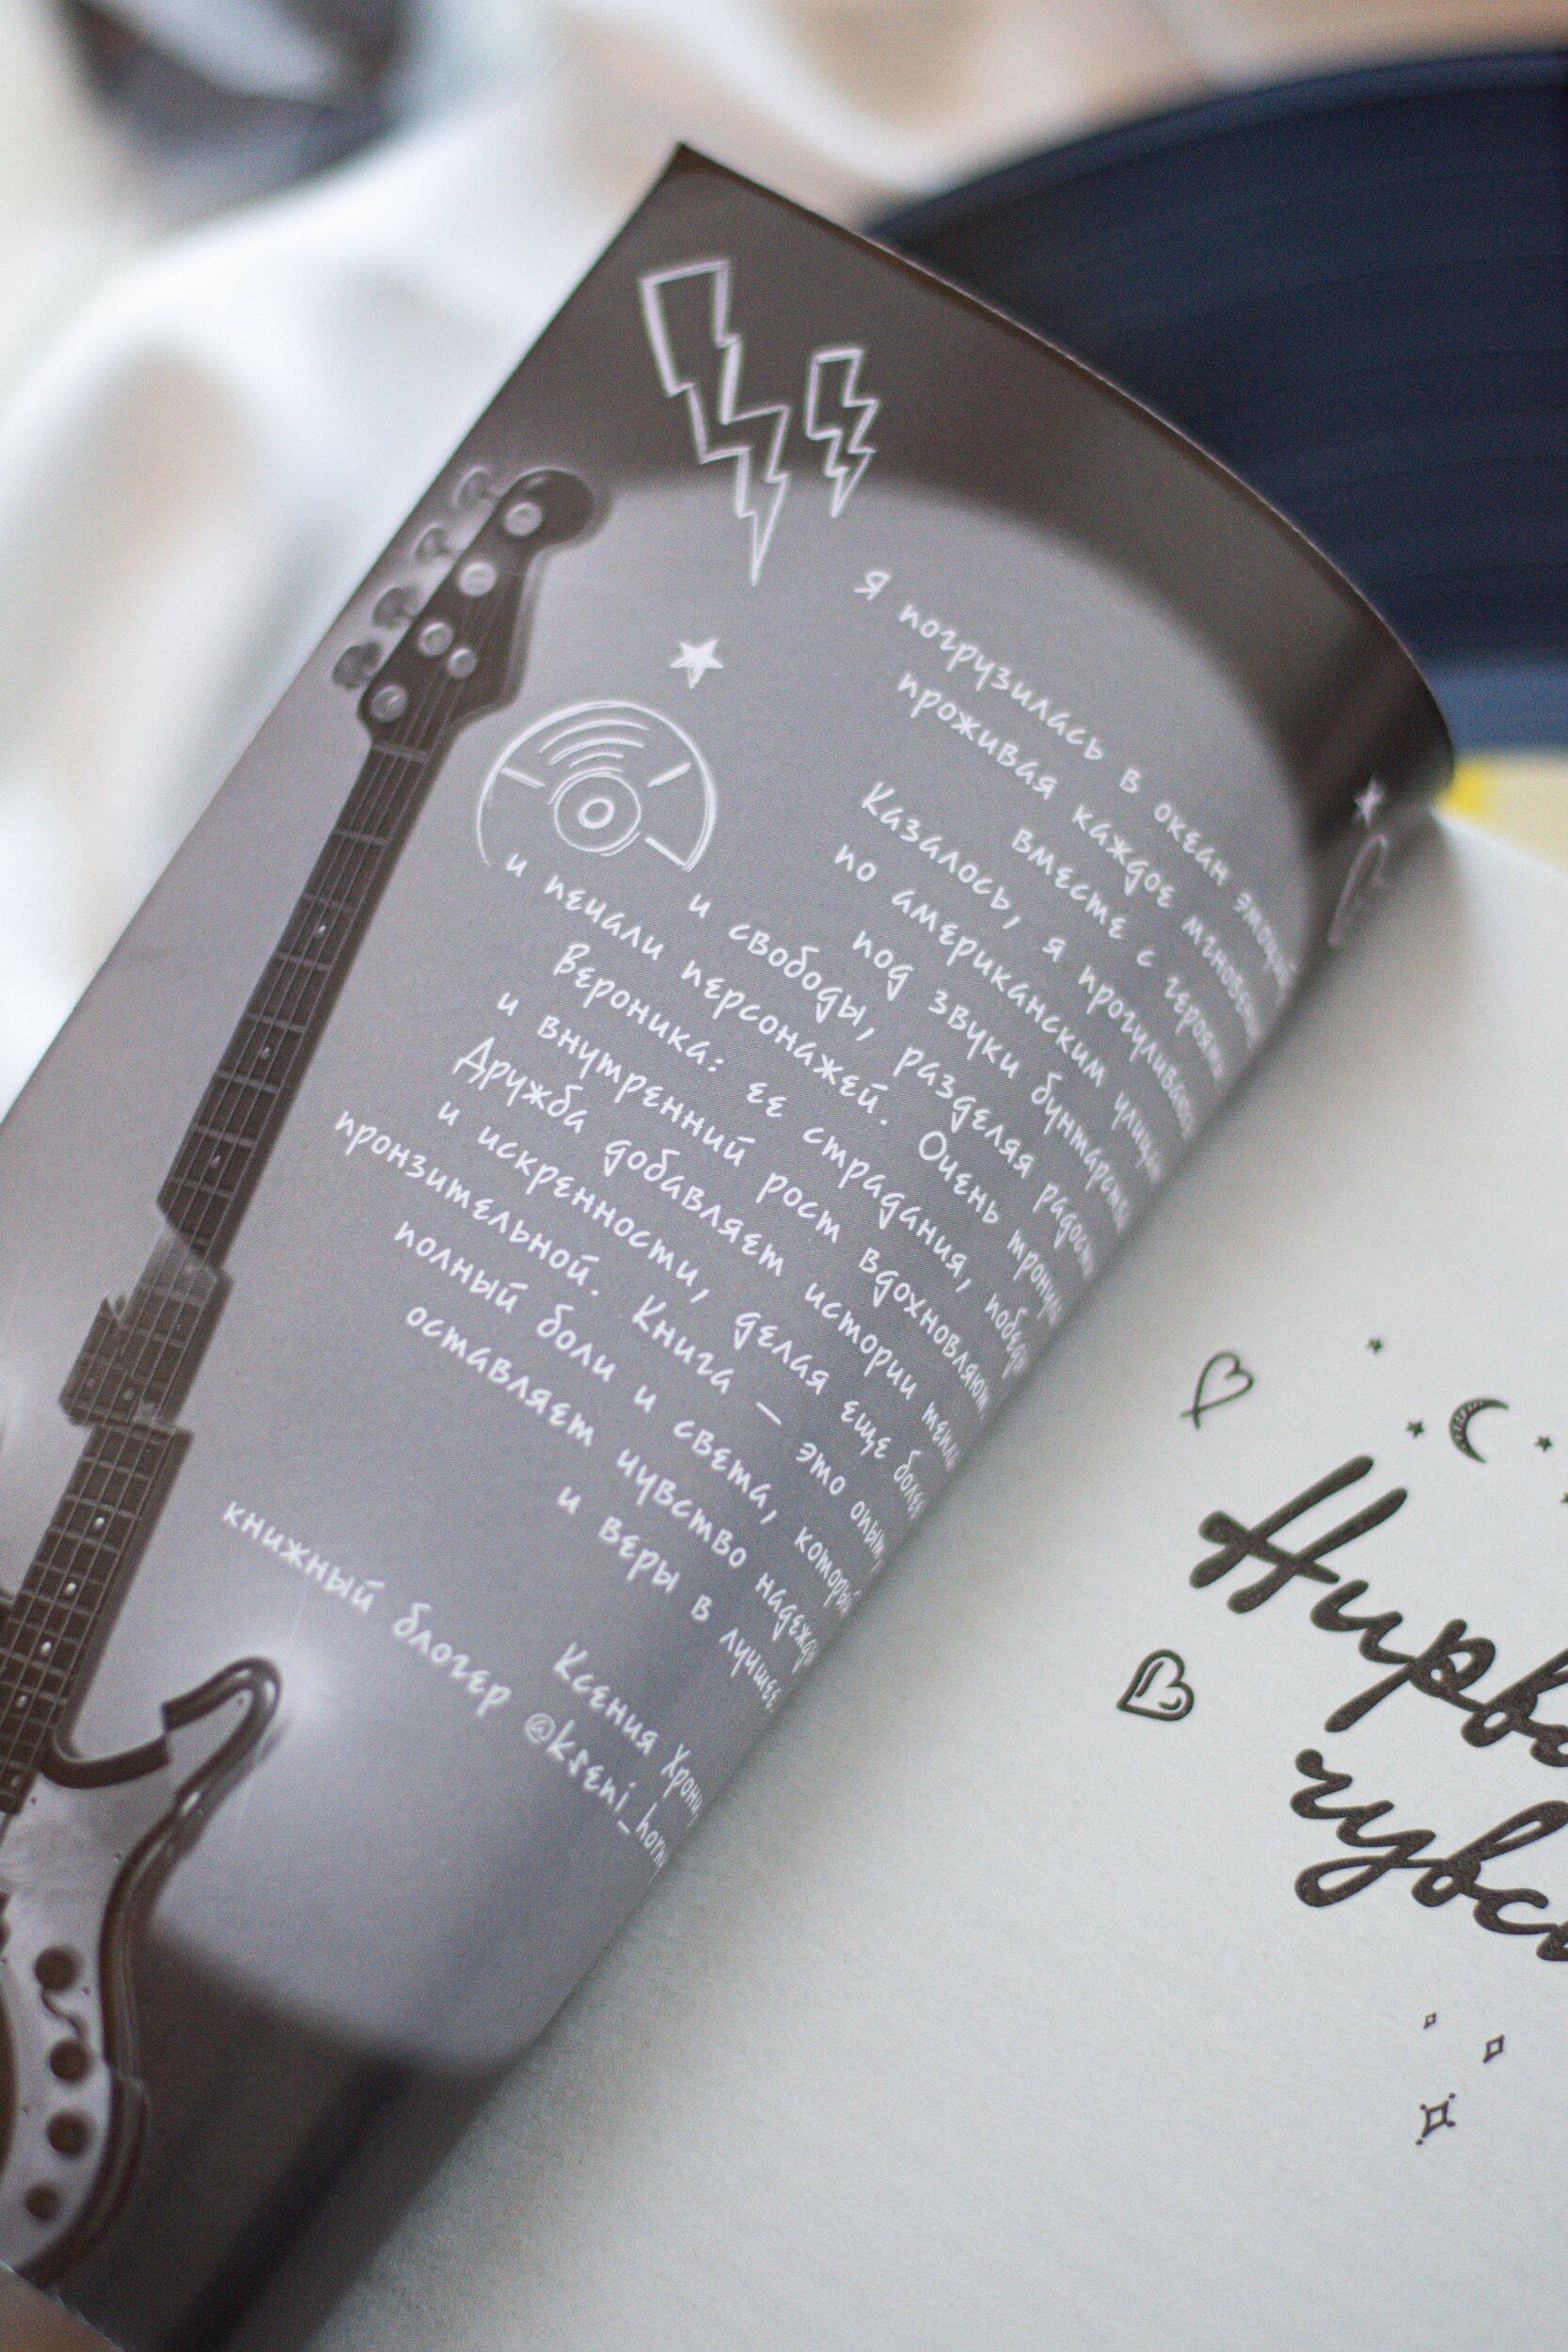 Я погрузилась в океан эмоций
проживая каждое мгновение
вместе с героями
Казалось, я прогуливаюсь
по американским улицам
под звуки бунтарства
и свободы, разделяя радости
и печали персонажей. Очень тронула
Вероника: ее страдания, победы
и внутренний рост вдохновляют.
Дружба добавляет истории тепла
и искренности, делая еще более
пронзительной. Книга – это опыт,
полный боли и света, который
оставляет чувство надежды
и веры в лучшее.
Ксения
книжный блогер